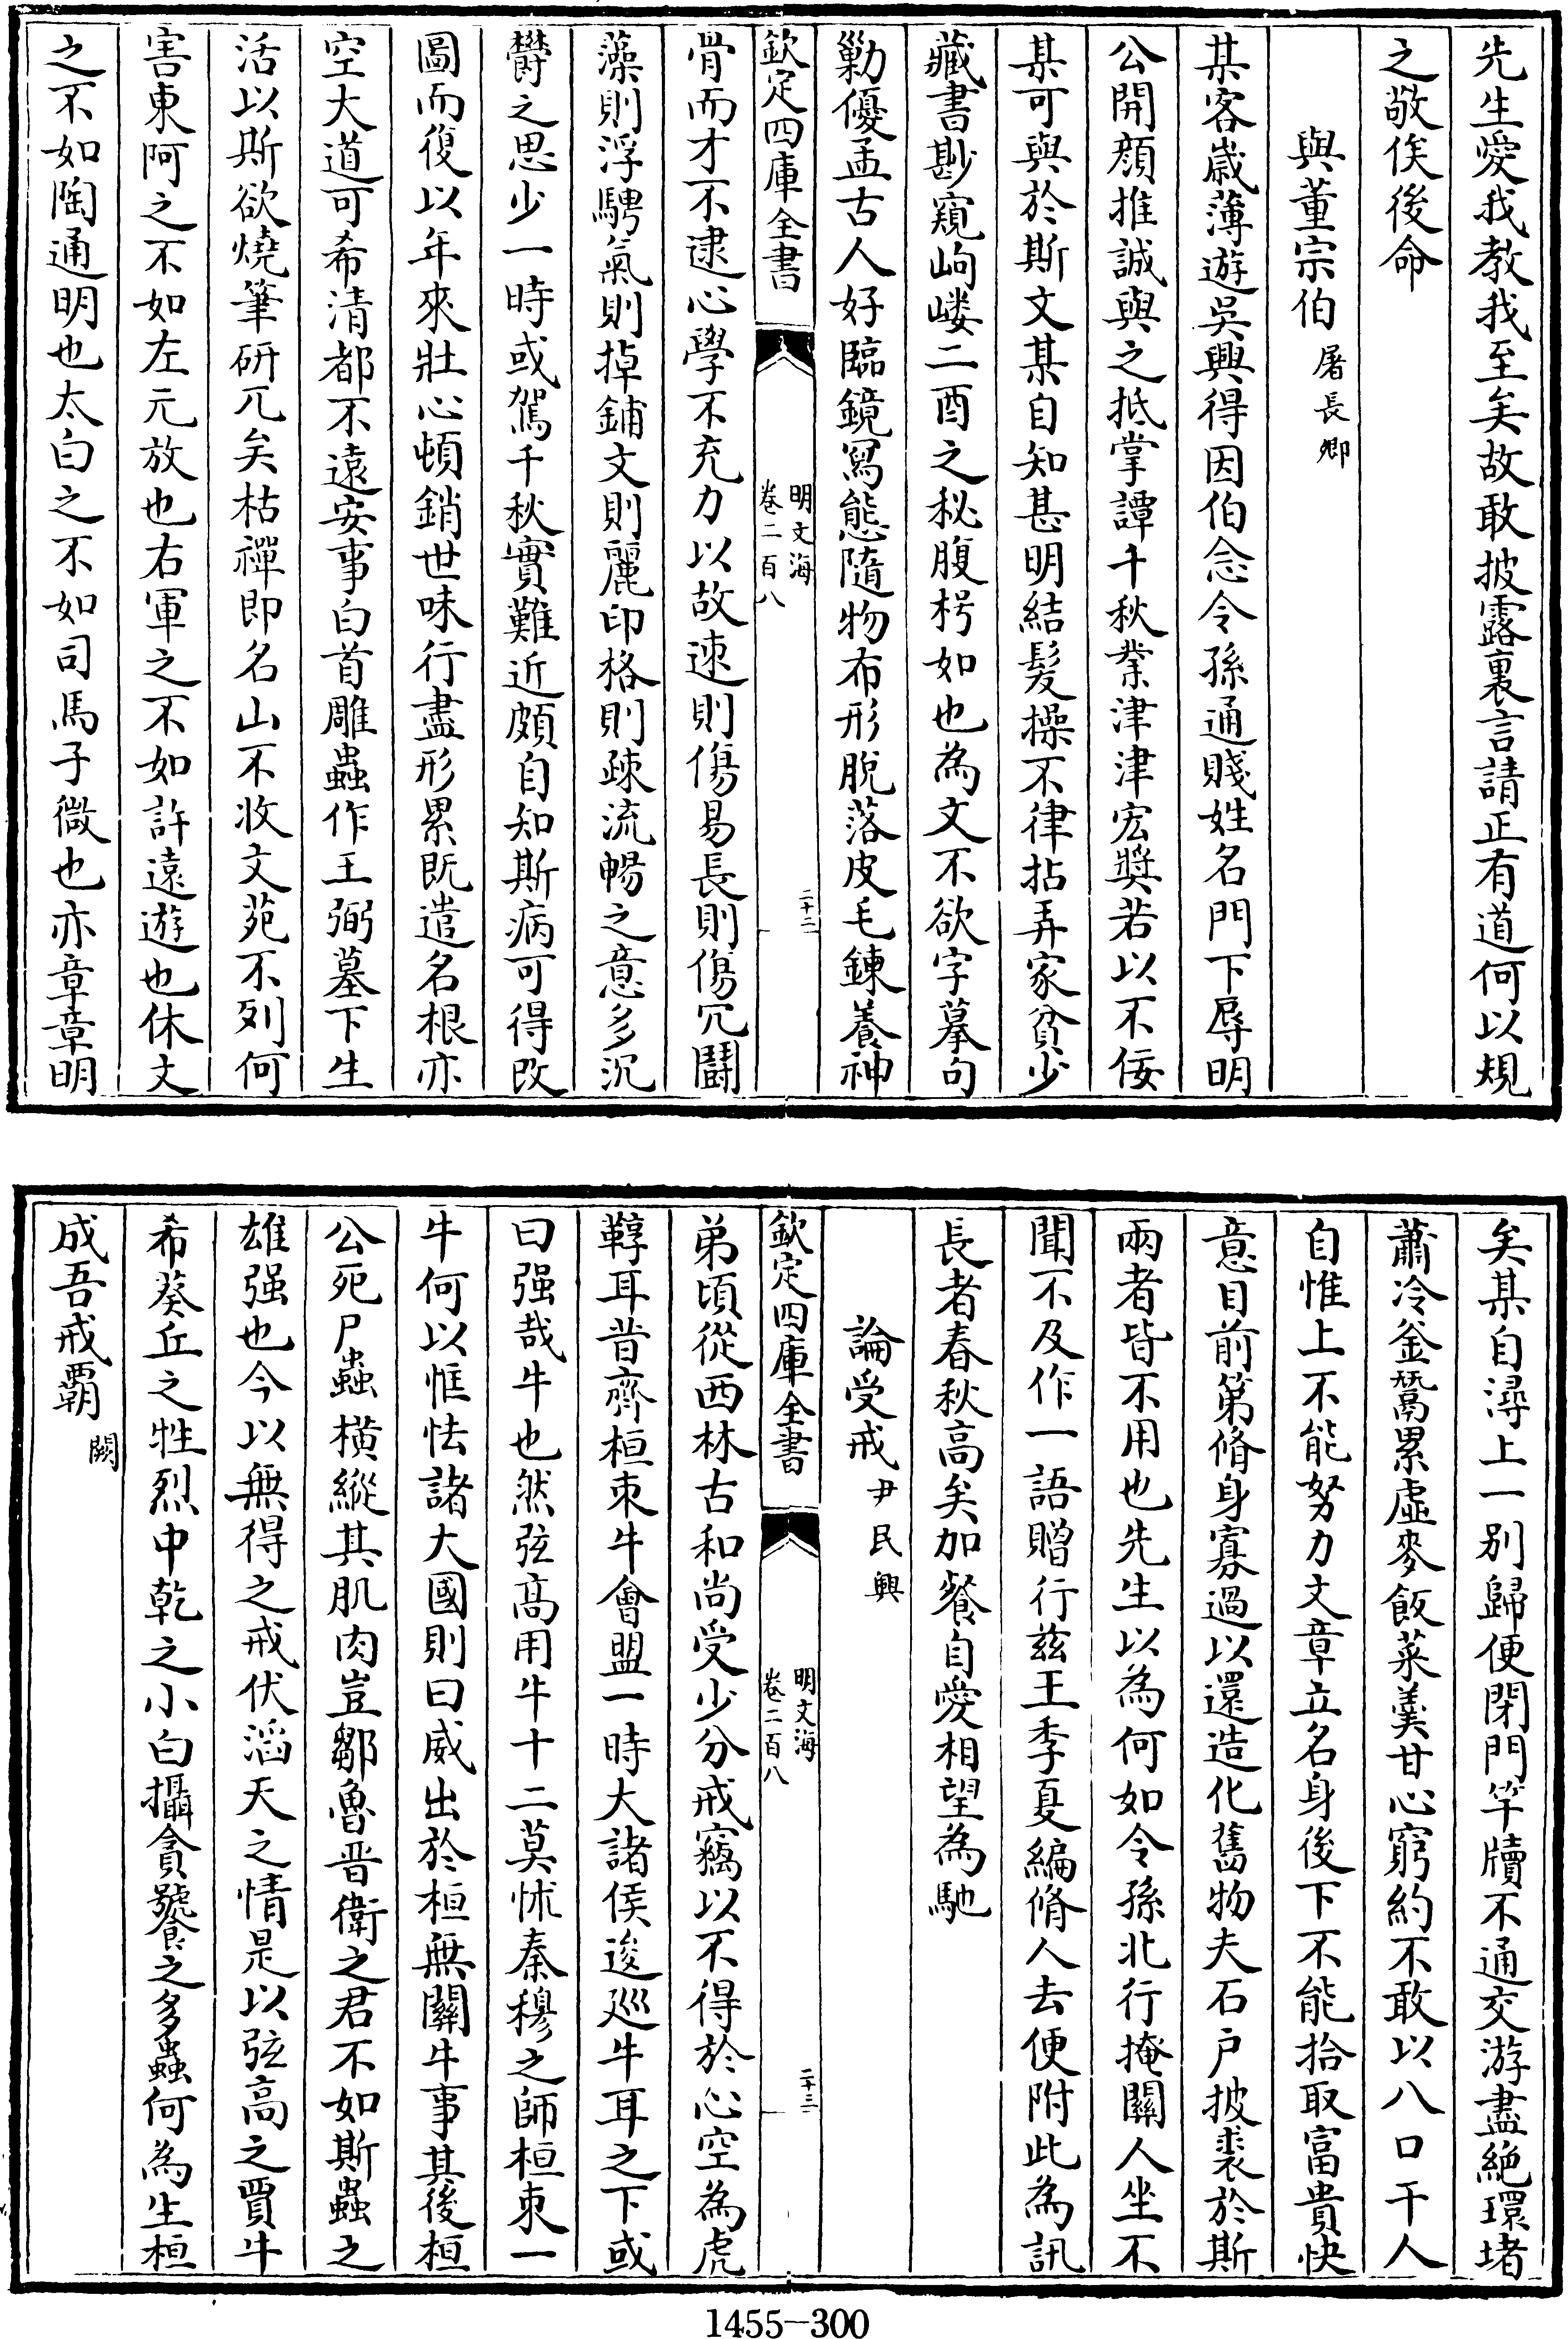 先生愛我教我至矣故敢披露裏言請正有道何以規
之敬俟後命
與董宗伯 屠長卿
某客歲薄遊吳興得因伯念令孫通賤姓名門下辱明
公開顏推誠與之抵掌譚千秋業津津宏奬若以不佞
某可與於斯文某自知甚明結髮操不律拈弄家貧少
藏書尠窺岣嶁二酉之秘腹枵如也為文不欲字摹句
勦優孟古人好臨鏡寫態隨物布形脫落皮毛鍊養神
欽定四庫全書
明文海
卷二百八
二十二
骨而才不逮心學不充力以故速則傷易長則傷冗鬭
藻則浮騁氣則掉鋪文則麗印格則疎流暢之意多沉
欝之思少一時或駕千秋實難近頗自知斯病可得改
圖而復以年來壯心頓銷世味行盡形累既遣名根亦
空大道可希清都不遠安事白首雕蟲作王弼墓下生
活以斯欲燒筆研兀矣枯禪即名山不收文苑不列何
害東阿之不如左元放也右軍之不如許遠遊也休文
之不如陶通明也太白之不如司馬子微也亦章章明
矣某自潯上一别歸便閉門竿牘不通交游盡絶環堵
蕭冷釜鬵累虛麥飯菜羹甘心窮約不敢以八口干人
自惟上不能努力文章立名身後下不能拾取富貴快
意目前第脩身寡過以還造化舊物夫石户披裘於斯
兩者皆不用也先生以為何如令孫北行掩關人坐不
聞不及作一語贈行兹王季夏編脩人去便附此為訊
長者春秋高矣加餐自愛相望為馳
論受戒 尹民興
欽定四庫全書
明文海
卷二百八
二十三
弟頃從西林古和尚受少分戒竊以不得於心空為虎
鞟耳昔齊桓朿牛會盟一時大諸侯逡廵牛耳之下或
曰强哉牛也然弦高用牛十二莫怵秦穆之師桓朿一
牛何以恇怯諸大國則曰威出於桓無關牛事其後桓
公死尸蟲橫縱其肌肉豈鄒魯晋衛之君不如斯蟲之
雄强也今以無得之戒伏滔天之情是以弦高之賈牛
希葵丘之牲烈中乾之小白攝貪饕之多蟲何為生桓
成吾戒覇 闕
1455-300